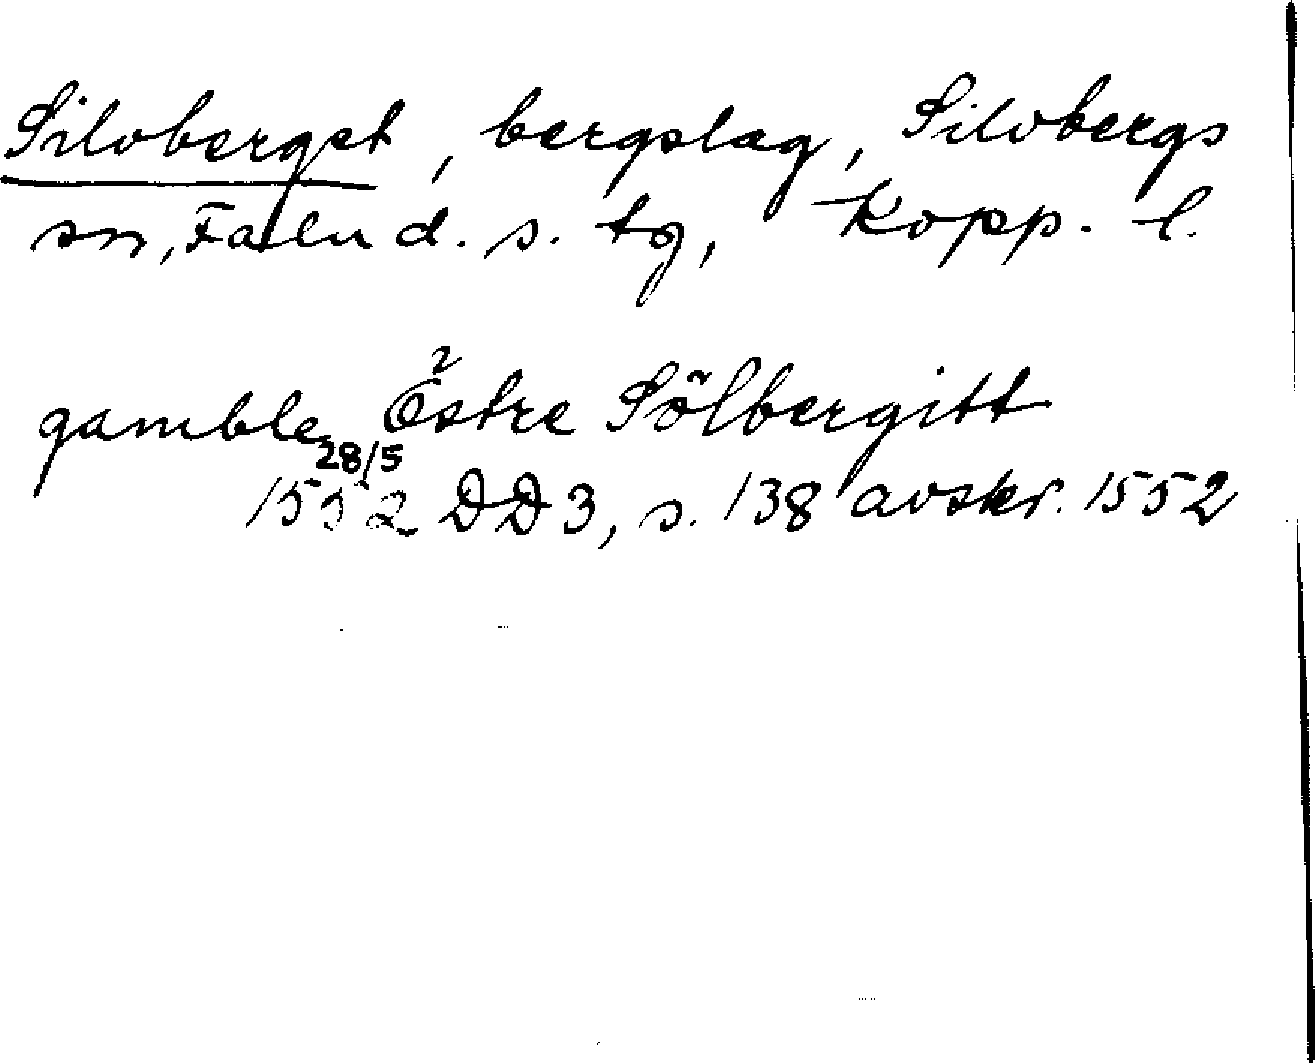 Silvberget, bergslag, Silvbergs
sn, Falu d. s. tg, Kopp. l.
gamble Östre Sölbergitt
28/5
1552 DD 3, s. 138 avskr. 1552